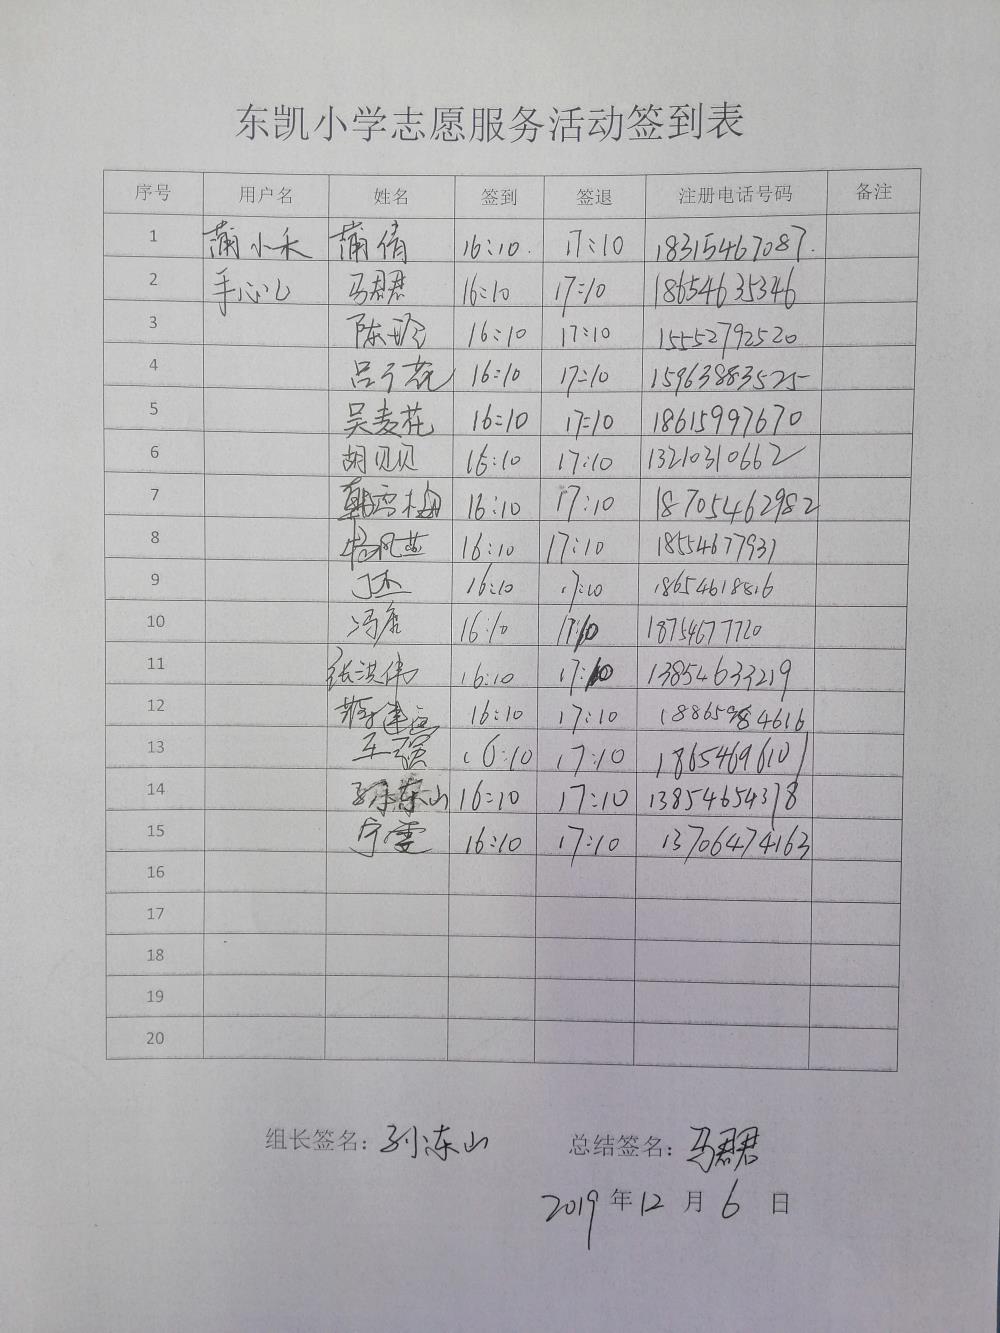 东凯小学志愿服务活动签到表
序号 用户名 姓名 签到 签退 注册电话号码 备注
1 蒲小禾 蒲倩 16:10. 17:10 18315467087.
2 手心心 马君君 16:10 17:10 18654635346
3 陈玲 16:10 17:10 15552792520
4 吕广花 16:10 17:10 15963883525
5 吴麦花 16:10 17:10 18615997670
6 胡贝贝 16:10 17:10 13210310662
7 韩雪梅 16:10 17:10 18705462982
8 16:10 17:10 18554677931
9 丁杰 16:10 17:10 18654618816
10 冯唐 16:10 17:10 18754677720
11 张洪伟 16:10 17:10 13854633219
12 16:10 17:10
13 王强 16:10 17:10 18654696101
14 孙东山 16:10 17:10 13854654378
15 宁雯 16:10 17:10 13706474163
16
17
18
19
20
组长签名：孙冻山 总结签名：马君君
2019年12月6日